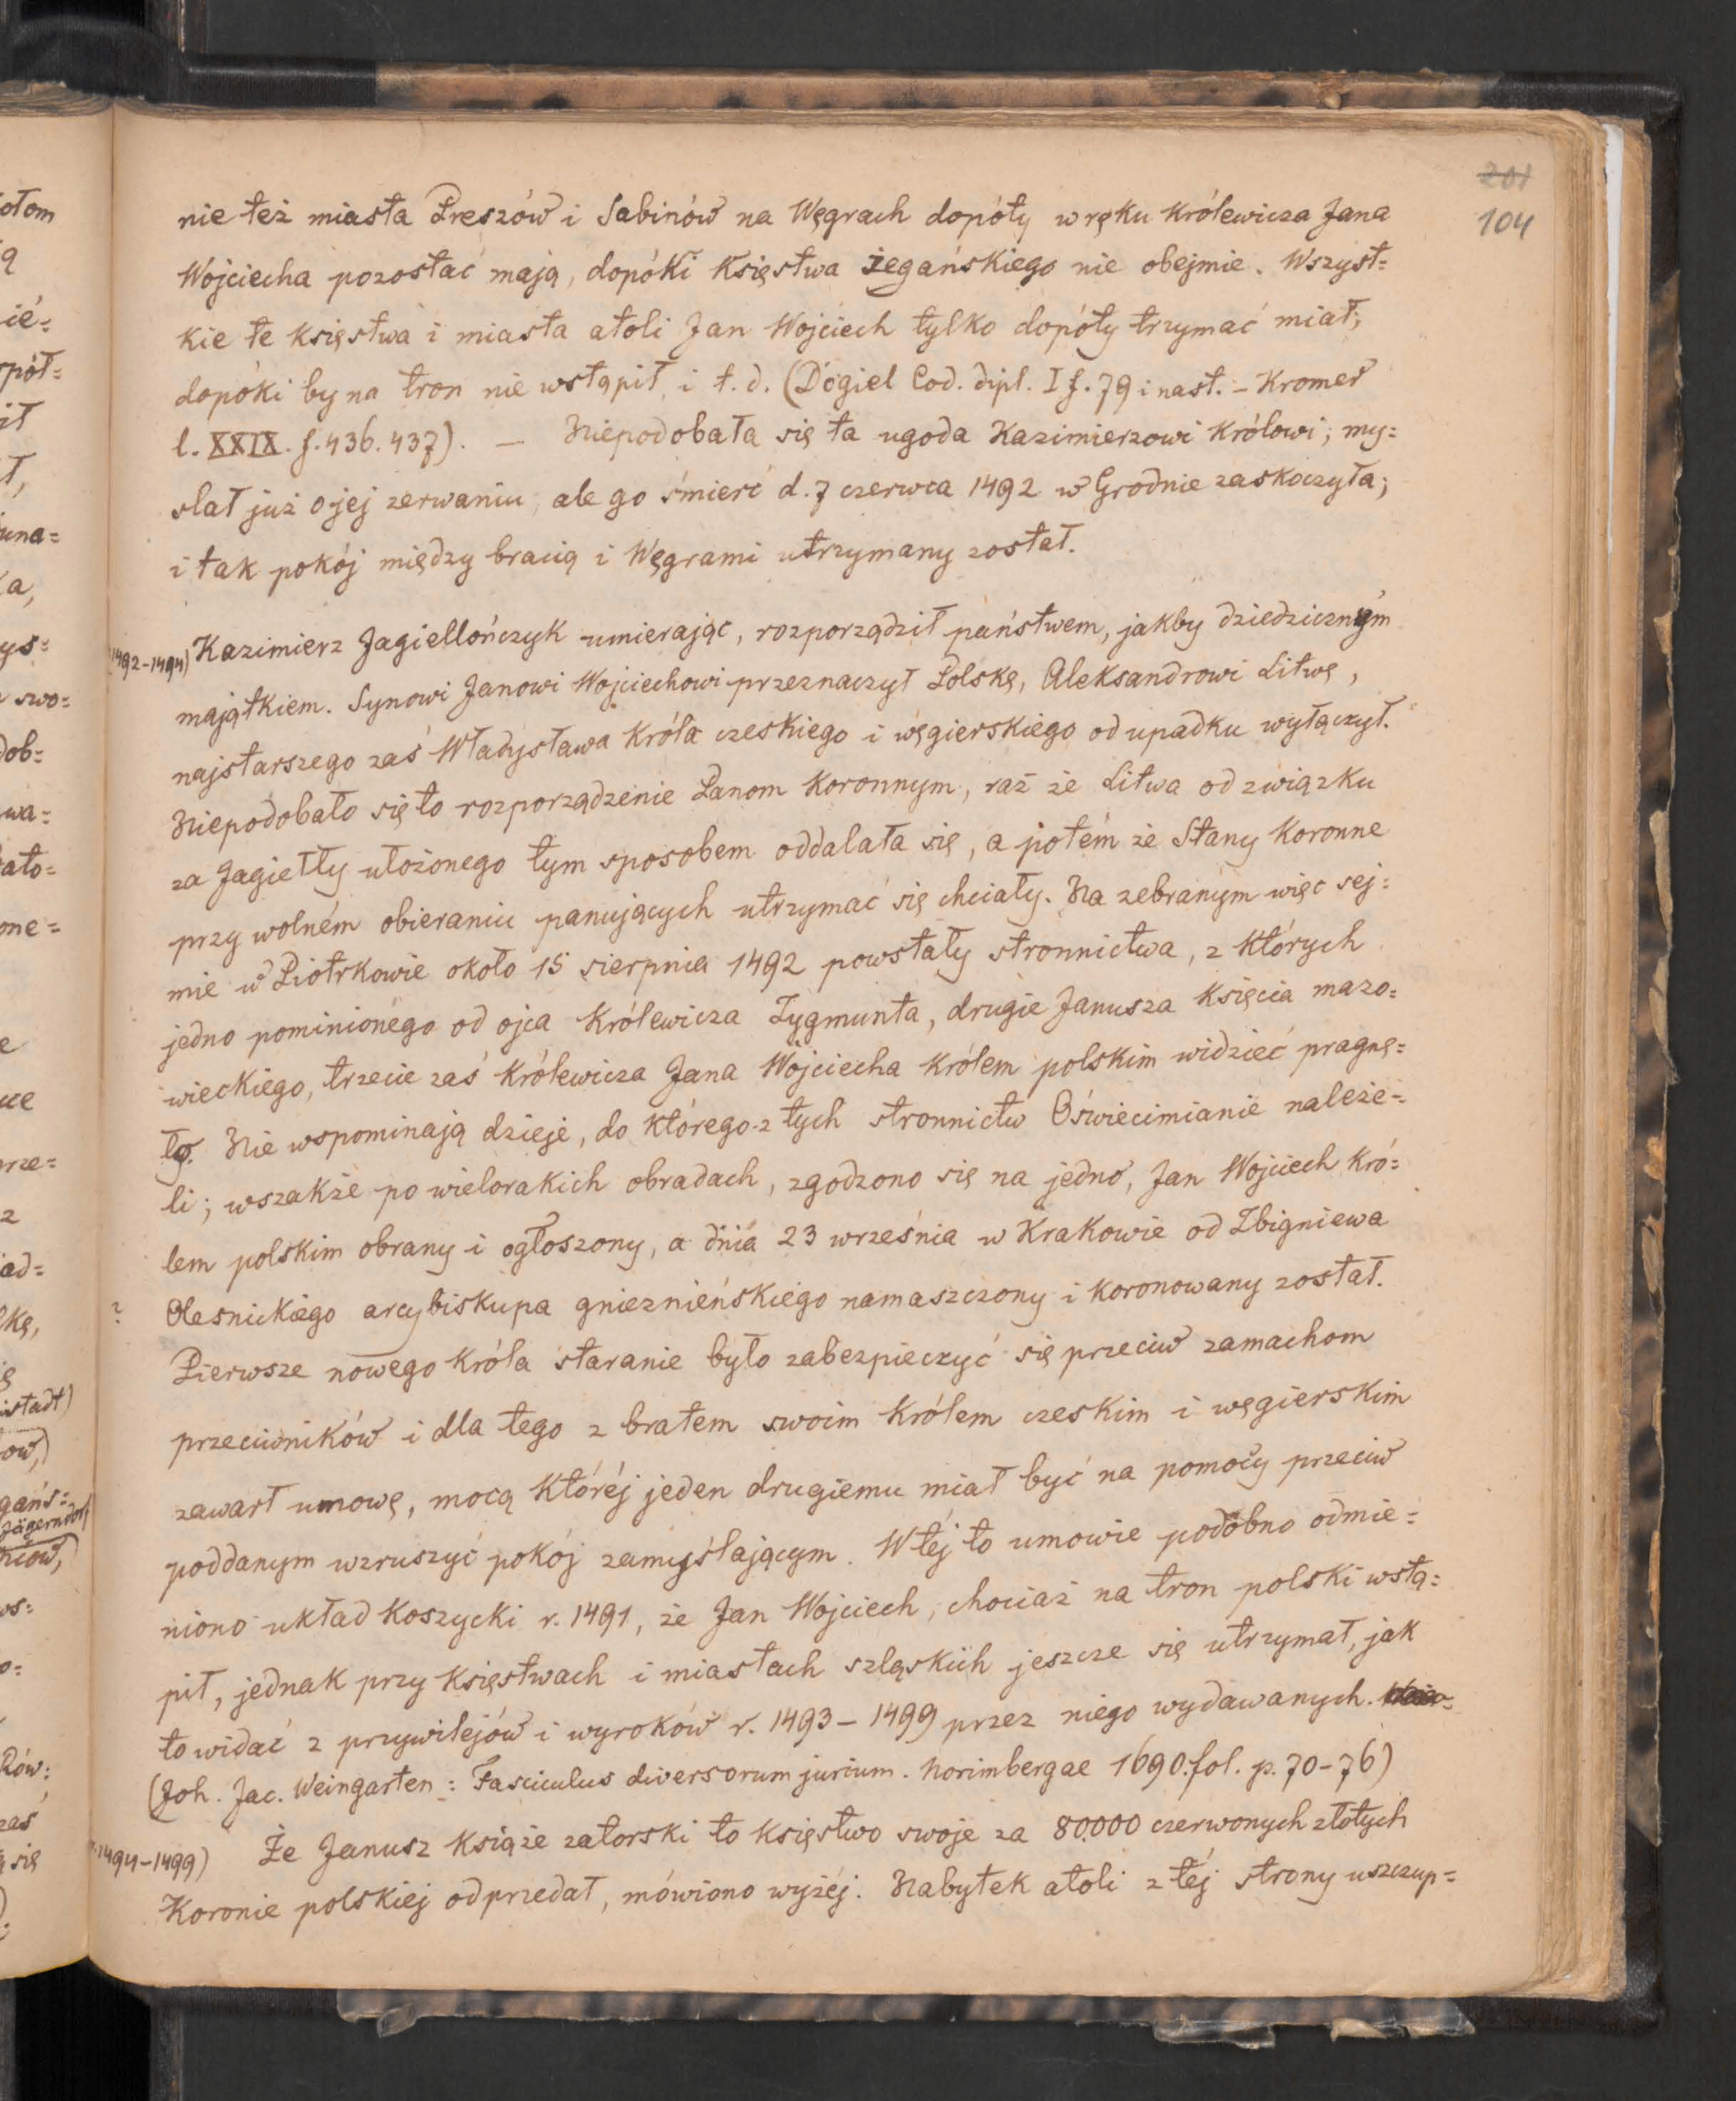 201
104
nie też miasta Preszów i Sabinów na Węgrach dopóty w ręku Królewicza Jana
Wojciecha pozostać mają, dopóki Księstwa żegańskiego nie obejmie. Wszyst=
kie te księstwa i miasta atoli Jan Wojciech tylko dopóty trzymać miał;
dopóki by na tron nie wstąpił, i t. d. (Dogiel Cod. dipl. I f. 79 i nast. – Kromer
l. XXIX. f. 436. 437). — Niepodobała się ta ugoda Kazimierzowi Królowi; my=
slał już o jej zerwaniu, ale go śmierć d. 7 czerwca 1492 w Grodnie zaskoczyła;
i tak pokój między bracią i Węgrami utrzymany został.
(1492–1494) Kazimierz Jagiellończyk umierając, rozporządził państwem, jakby dziedzicznym
majątkiem. Synowi Janowi Wojciechowi przeznaczył Polskę, Aleksandrowi Litwę,
najstarszego zaś Władysława Króla czeskiego i węgierskiego od upadku wyłączył.
Niepodobało się to rozporządzenie Panom Koronnym, raz że Litwa od związku
za Jagiełły ułożonego tym sposobem oddalała się, a potém że Stany Koronne
przy wolném obieraniu panujących utrzymać się chciały. Na zebranym więc sej=
mie w Piotrkowie około 15 sierpnia 1492 powstały stronnictwa, z których
jedno pominionego od ojca Królewicza Zygmunta, drugie Janusza Księcia mazo=
wieckiego, trzecie zaś Królewicza Jana Wojciecha Królem polskim widzieć pragnę=
ło. Nie wspominają dzieje, do którego z tych stronnictw Oświecimianie należe=
li; wszakże po wielorakich obradach, zgodzono się na jedno, Jan Wojciech Kró=
lem polskim obrany i ogłoszony, a dnia 23 września w Krakowie od Zbigniewa
? Olesnickiego arcybiskupa gnieznieńskiego namaszczony i koronowany został.
Pierwsze nowego Króla staranie było zabezpieczyć się przeciw zamachom
przeciwników i dla tego z bratem swoim Królem czeskim i węgierskim
zawarł umowę, mocą któréj jeden drugiemu miał być na pomocy przeciw
poddanym wzruszyć pokój zamyślającym. W téj to umowie podobno odmie=
niono układ Koszycki r. 1491, że Jan Wojciech, chociaż na tron polski wstą=
pił, jednak przy Księstwach i miastach szląskich jeszcze się utrzymał, jak
to widać z przywilejów i wyroków r. 1493 – 1499 przez niego wydawanych.
(Joh. Jac. Weingarten : Fasciculus diversorum jurium. Norimbergae 1690. fol. p. 70–76)
1494–1499) Że Janusz Książe zatorski to Księstwo swoje za 80000 czerwonych złotych
Koronie polskiej odprzedał, mówiono wyżéj. Nabytek atoli z téj strony uszczup=